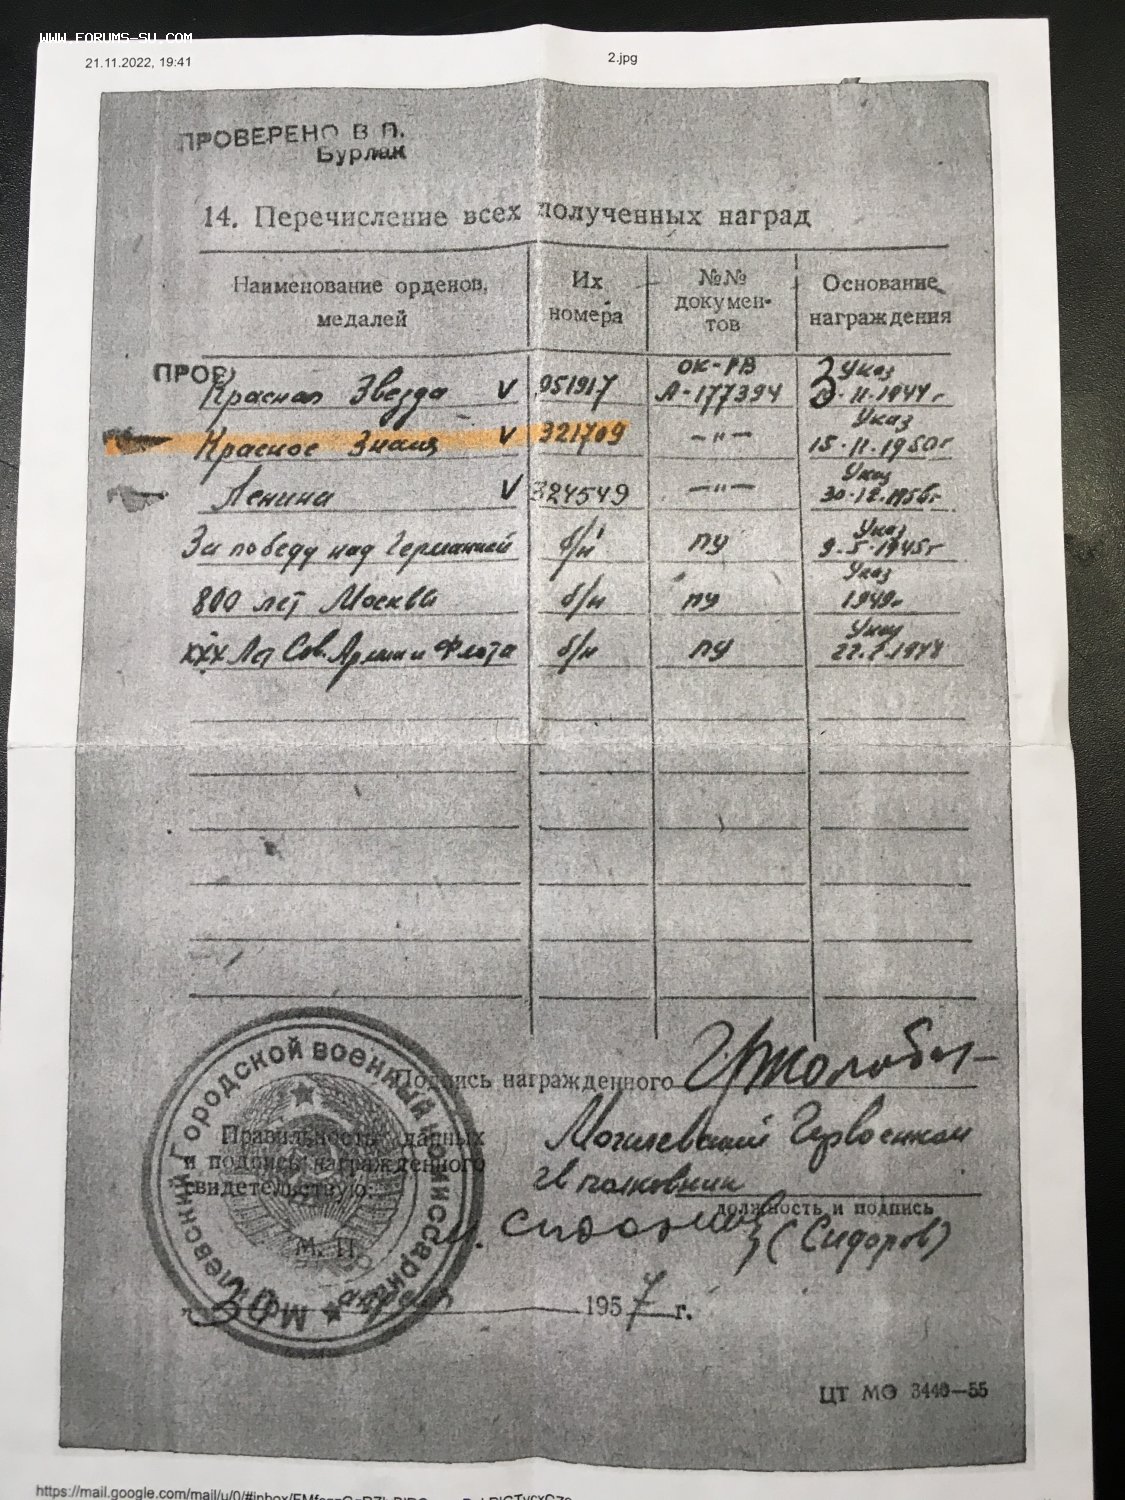 WWW.FORUMS-SU.COM
21.11.2022, 19:41 2.jpg
ПРОВЕРЕНО В П.
Бурлак
14. Перечисление всех полученных наград
Наименование орденов, медалей Их номера №№ докумен-тов Основание награждения
ПРОВ
Красная Звезда V 951917 ОК-РВ А-177394 Указ 3.11.1944г
Красное Знамя V 321709 —"— Указ 15.11.1950г
Ленина V 324549 —"— Указ 30.12.1956г
За победу над Германией б/н ПУ Указ 9.5.1945г
800 лет Москвы б/н ПУ Указ
ХХХ лет Сов. Армии и Флота б/н ПУ Указ 22.2.1948
Подпись награжденного
Правильность данных
и подпись награжденного
свидетельствую:
Могилевский Горвоенком
гв полковник
должность и подпись
(Сидоров)
М. П.
Могилевский Городской Военный Комиссариат
"30" апреля 1957 г.
ЦТ МО 3440—55